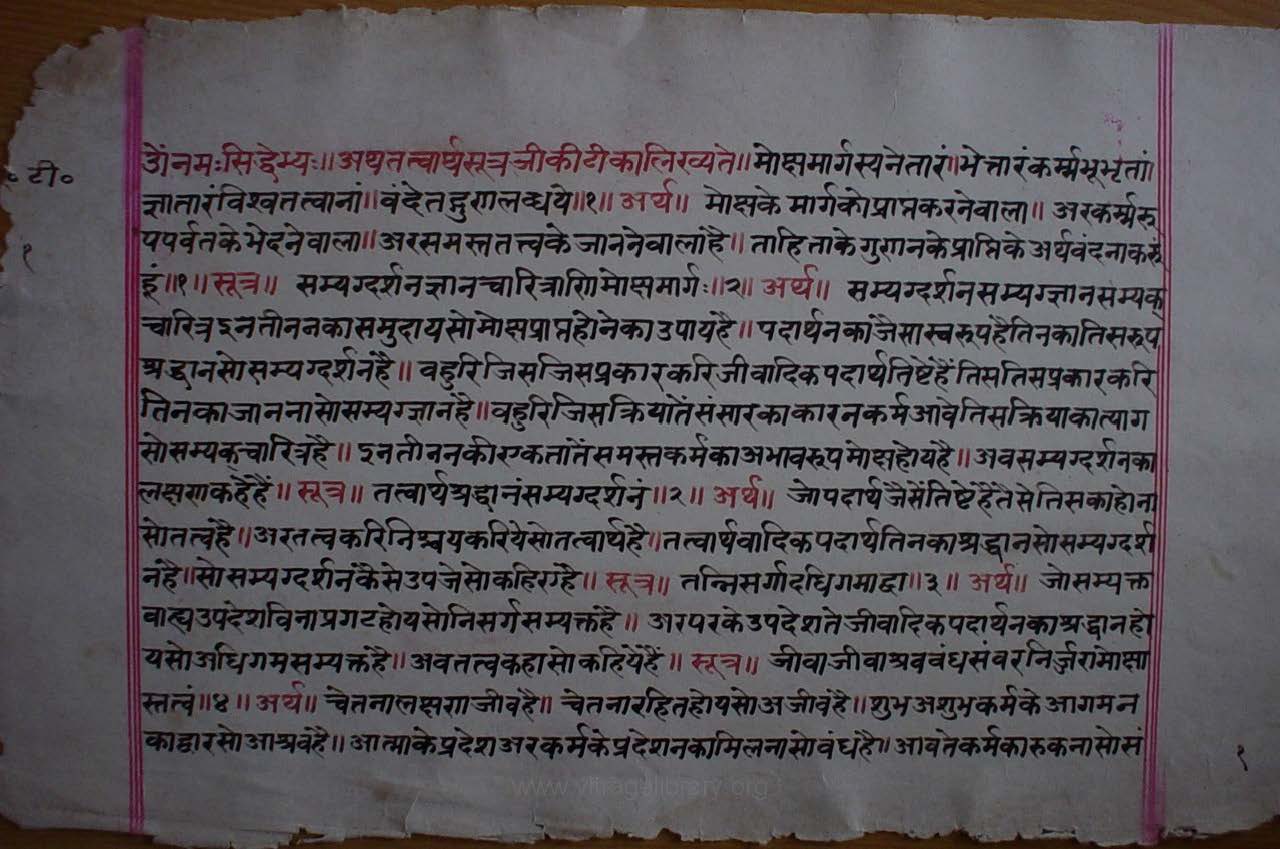 ॐनमःसिद्धेभ्यः॥अथतत्वार्थसूत्रजीकीटीकालिख्यते॥मोक्षमार्गस्यनेतारं॥भेत्तारंकर्म्मभूभृतां
टी॰
ज्ञातारंविश्वतत्वानां॥वंदेतद्गुणलब्धये॥१॥ अर्थ॥ मोक्षकेमार्गकोप्राप्तकरनेवाला॥ अरकर्म्मरू
पपर्वतकेभेदनेवाला॥अरसमस्ततत्त्वकेजाननेवालाहै॥ ताहिताकेगुणनकेप्राप्तिकेअर्थवंदनाकरु
१
हूं॥१॥सूत्र॥ सम्यग्दर्शनज्ञानचारित्राणिमोक्षमार्गः॥२॥ अर्थ॥ सम्यग्दर्शनसम्यग्ज्ञानसम्यक्
चारित्रइनतीननकासमुदायसोमोक्षप्राप्तहोनेकाउपायहै॥ पदार्थनकाजैसास्वरूपहैतिनकातिसरूप
श्रद्धानसोसम्यग्दर्शनहै॥ वहुरिजिसजिसप्रकारकरिजीवादिकपदार्थतिष्टेहैंतिसतिसप्रकारकरि
तिनकाजाननासोसम्यग्ज्ञानहै॥वहुरिजिसक्रियातेंसंसारकाकारनकर्मआवेतिसक्रियाकात्याग
सोसम्यक्चारित्रहै॥ इनतीननकीएकतातेंसमस्तकर्मकाअभावरूपमोक्षहोयहै॥ अवसम्यग्दर्शनका
लक्षणकहैहैं॥ सूत्र॥ तत्वार्थश्रद्धानंसम्यग्दर्शनं॥२॥ अर्थ॥ जोपदार्थजैसेंतिष्टेहैंतैसेतिसकाहोना
सोतत्वहै॥अरतत्वकरिनिश्चयकरियेसोतत्वार्थहै॥तत्वार्थवादिकपदार्थतिनकाश्रद्धानसोसम्यग्दर्श
नहै॥सोसम्यग्दर्शनकैसेउपजेसोकहिएहै॥ सूत्र॥ तन्निसर्गादधिगमाद्वा॥३॥ अर्थ॥ जोसम्यक्त
वाह्यउपदेशविनाप्रगटहोयसोनिसर्गसम्यक्तहै॥ अरपरकेउपदेशतेजीवादिकपदार्थनकाश्रद्धानहो
यसोअधिगमसम्यक्तहै॥अवतत्वकहासोकहियेहैं॥ सूत्र॥ जीवाजीवाश्रवबंधसंवरनिर्ज्जरामोक्षा
स्तत्वं॥४॥ अर्थ॥ चेतनालक्षणजीवहै॥ चेतनारहितहोयसोअजीवहै॥शुभअशुभकर्मकेआगमन
काद्वारसोआश्रवहै॥ आत्माकेप्रदेशअरकर्मकेप्रदेशनकामिलनासोबंधहै॥ आवतेकर्मकारुकनासोसं
१
www.vitragelibrary.org